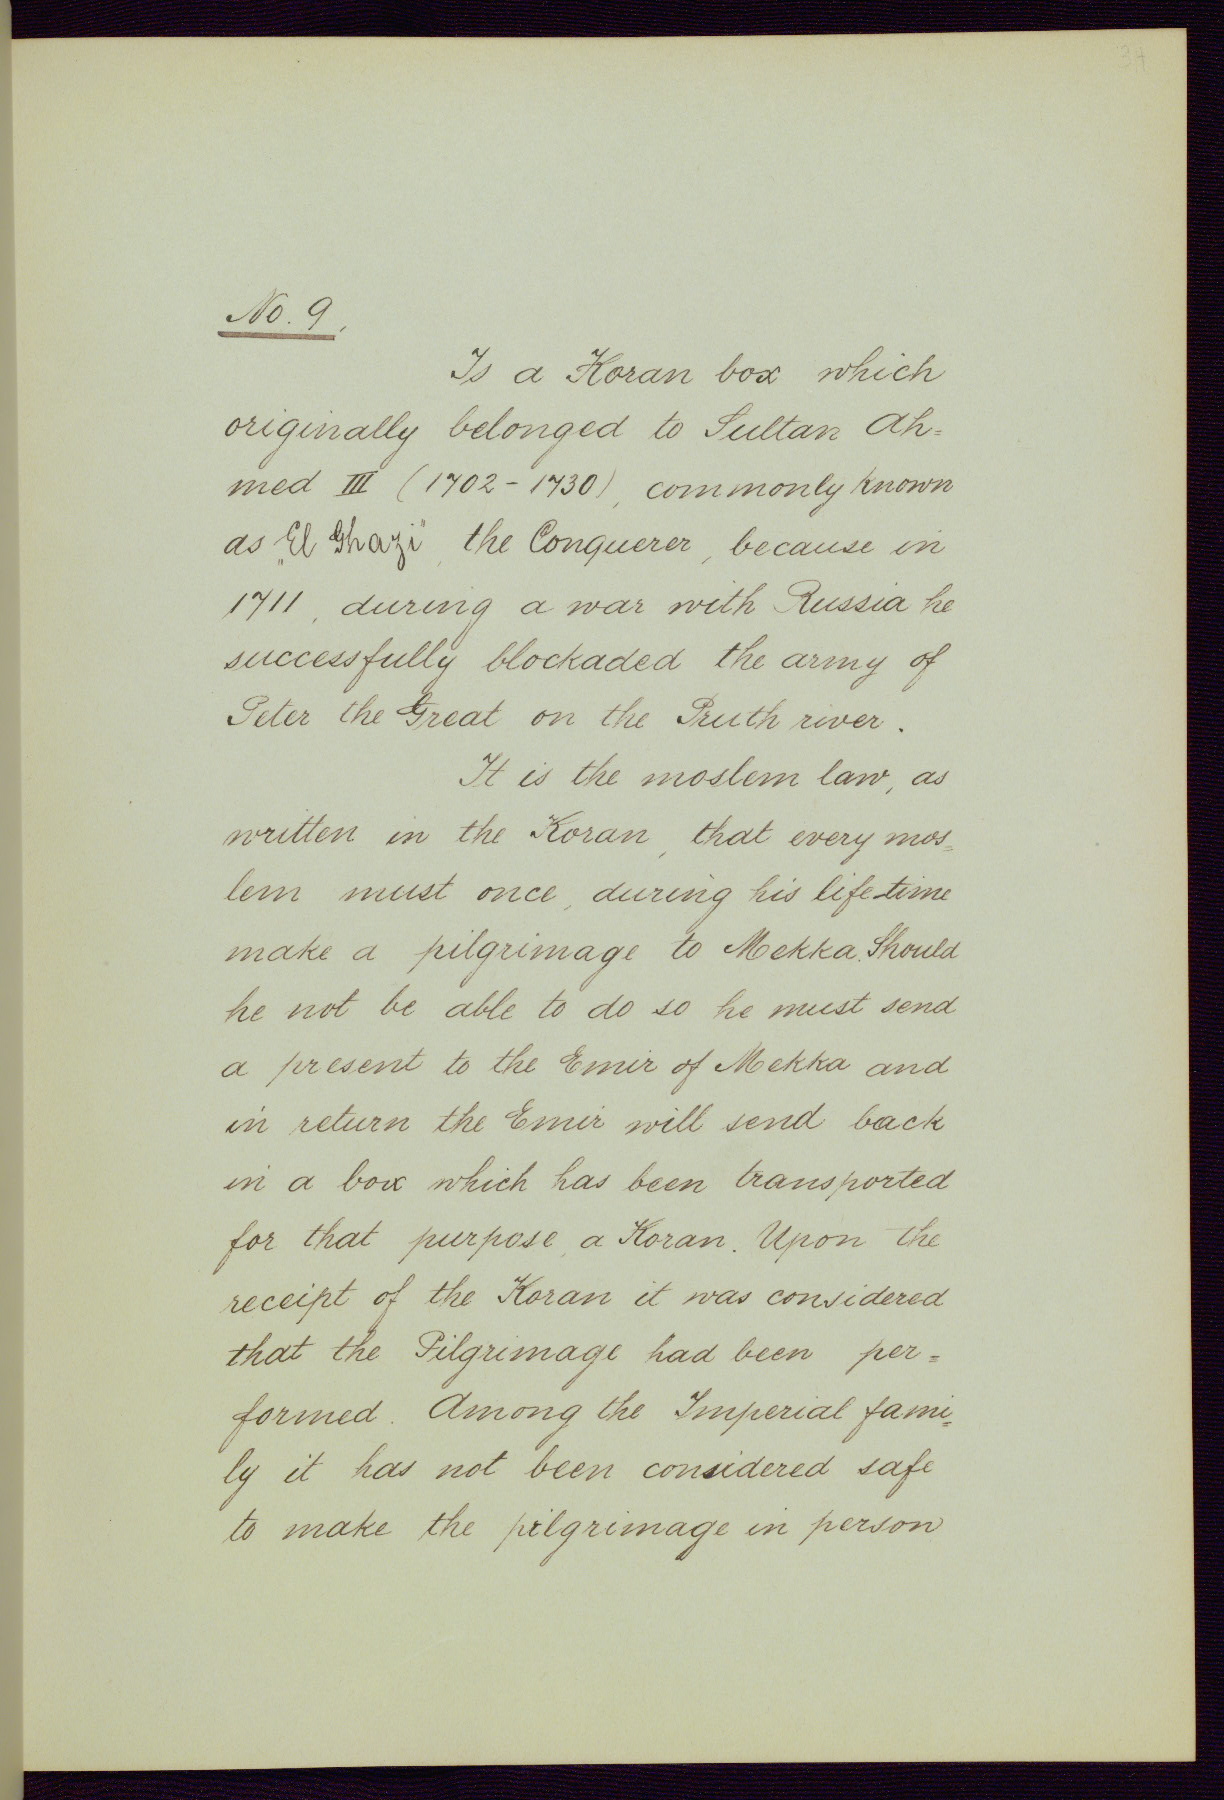 34
No. 9,
Is a Koran box which
originally belonged to Sultan Ah=
med III (1702-1730), commonly known
as „El Ghazi", the Conquerer, because in
1711, during a war with Russia he
successfully blockaded the army of
Peter the Great on the Pruth river.
It is the moslem law, as
written in the Koran, that every mos=
lem must once, during his life-time
make a pilgrimage to Mekka. Should
he not be able to do so he must send
a present to the Emir of Mekka and
in return the Emir will send back
in a box which has been transported
for that purpose, a Koran. Upon the
receipt of the Koran it was considered
that the Pilgrimage had been per=
formed. Among the Imperial fami=
ly it has not been considered safe
to make the pilgrimage in person